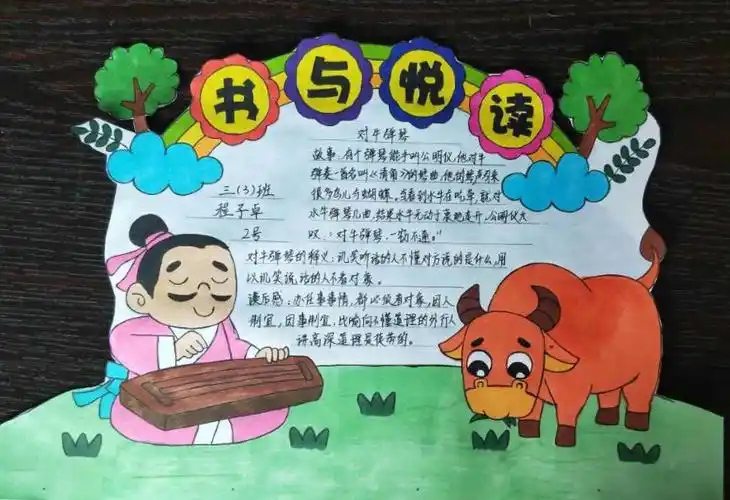 书与悦读
对牛弹琴
三(3)班
程子卓
2号
故事：有个弹琴能手叫公明仪，他对牛
弹奏一首名叫《清角》的琴曲，他的琴声引来
很多鸟儿与蝴蝶，当看到水牛在吃草，就对
水牛弹琴几曲，结果水牛无动于衷地走开，公明仪大
叹："对牛弹琴，一窍不通。"
对牛弹琴的释义：讥笑听话的人不懂对方说的是什么，用
以讥笑说话的人不看对象。
读后感：办任事事情，都必须看对象，因人
制宜，因事制宜，比喻向不懂道理的外行人
讲高深道理是徒劳的。